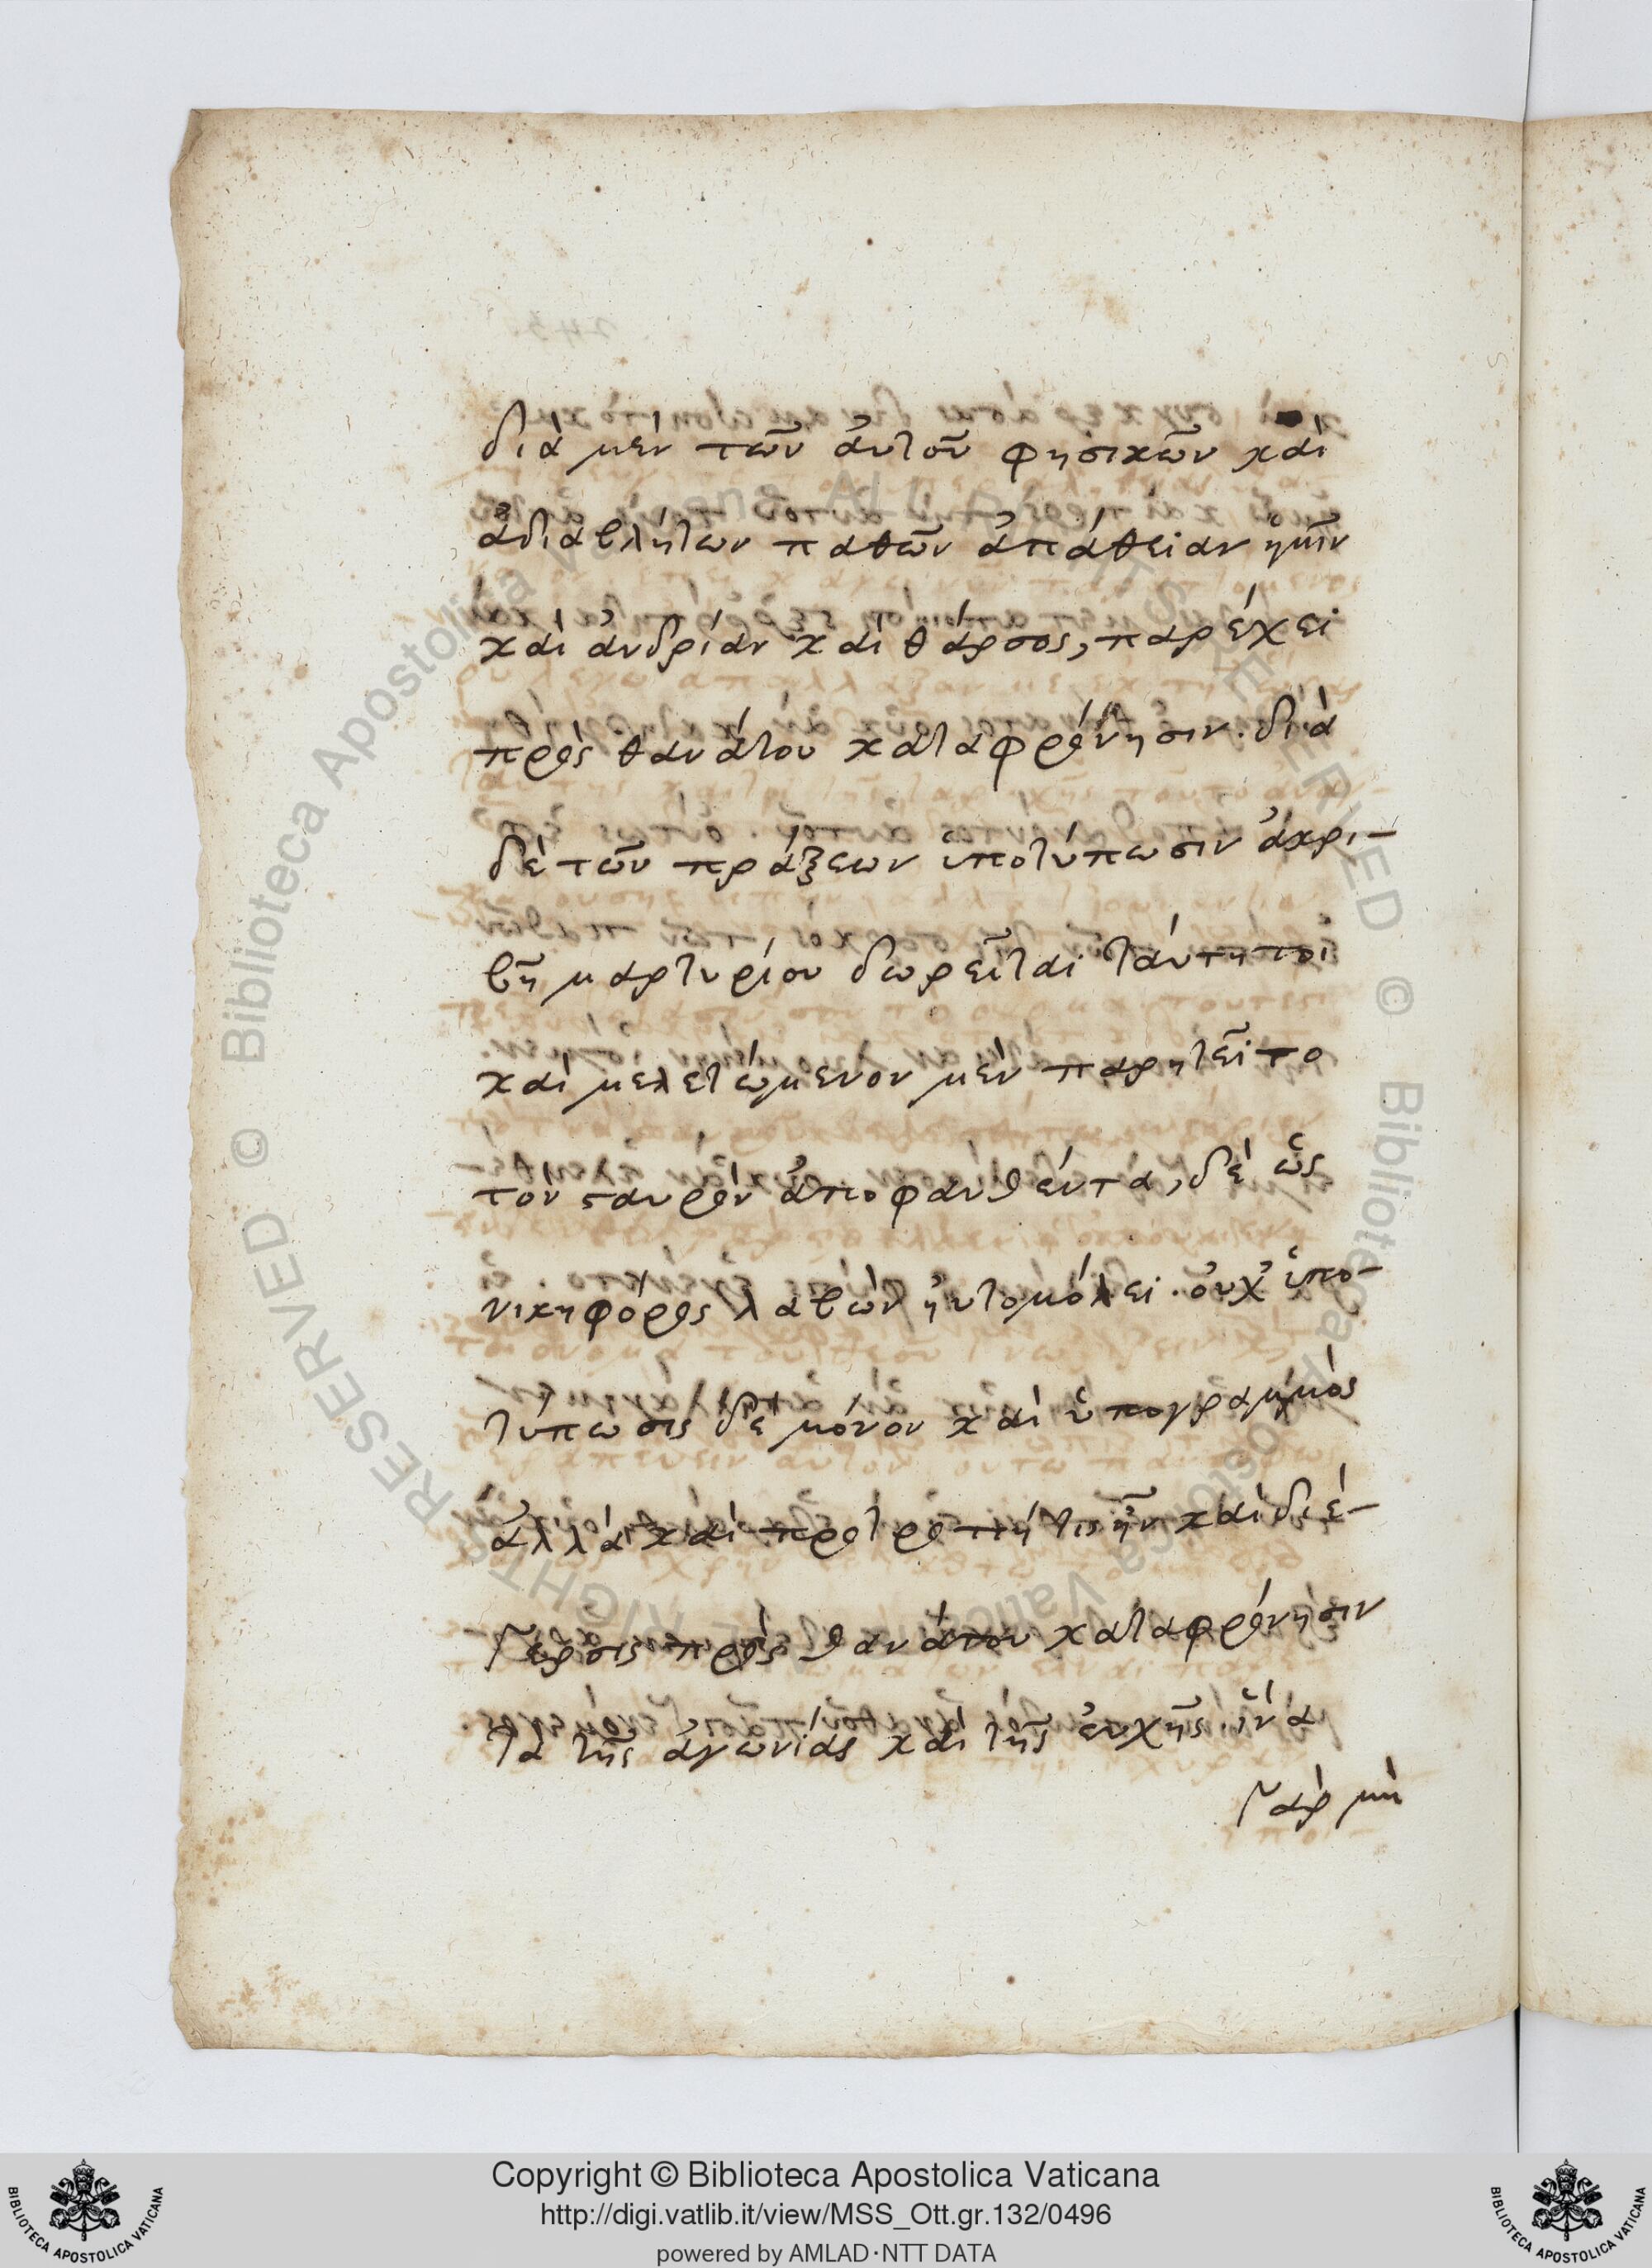 διὰ μὲν τῶν αὐτοῦ φησικῶν καὶ
ἀδιαβλήτων παθῶν ἀπάθειαν ἡμῖν
καὶ ἀνδρίαν καὶ θάρσος, παρέχει
πρὸς θανάτου καταφρόνησιν. διὰ
δὲ τῶν πράξεων ὑποτύπωσιν ἀκρι-
βῆ μαρτυρίου δωρεῖται ταύτη τοι
καὶ μελετώμενον μὲν παρητεῖτο
τὸν σαυρὸν ἀποφανθέντα, δὲ ὡς
νικηφόρος λαβὼν ηὐτομόλει. οὐχ ὑπο-
τύπωσις δὲ μόνον καὶ ὑπογραμμὸς
ἀλλὰ καὶ προτροπή τις ἦν καὶ διέ-
γερσις πρὸς θανάτου καταφρόνησιν
τὰ τῆς ἀγωνίας καὶ τῆς εὐχῆς. ἵνα
γὰρ μὴ
Copyright © Biblioteca Apostolica Vaticana
http://digi.vatlib.it/view/MSS_Ott.gr.132/0496
powered by AMLAD·NTT DATA
BIBLIOTECA APOSTOLICA VATICANA
BIBLIOTECA APOSTOLICA VATICANA